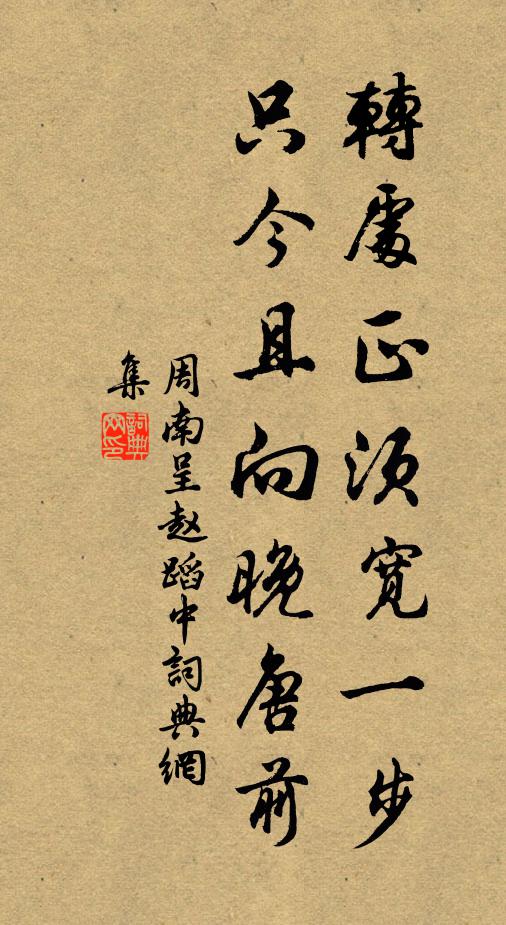 轉處正須寬一步
只今且向晚唐前
周南呈赵蹈中詞典網
集
詞典網印